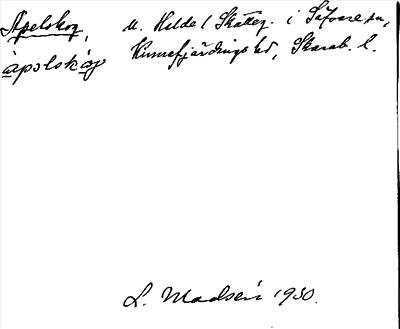 Apelskog, u. Helde (Skatteg. i Säfvare sn,
àpəlskóg Kinnefjärdings hd, Skarab. l.
L. Madsén 1930.